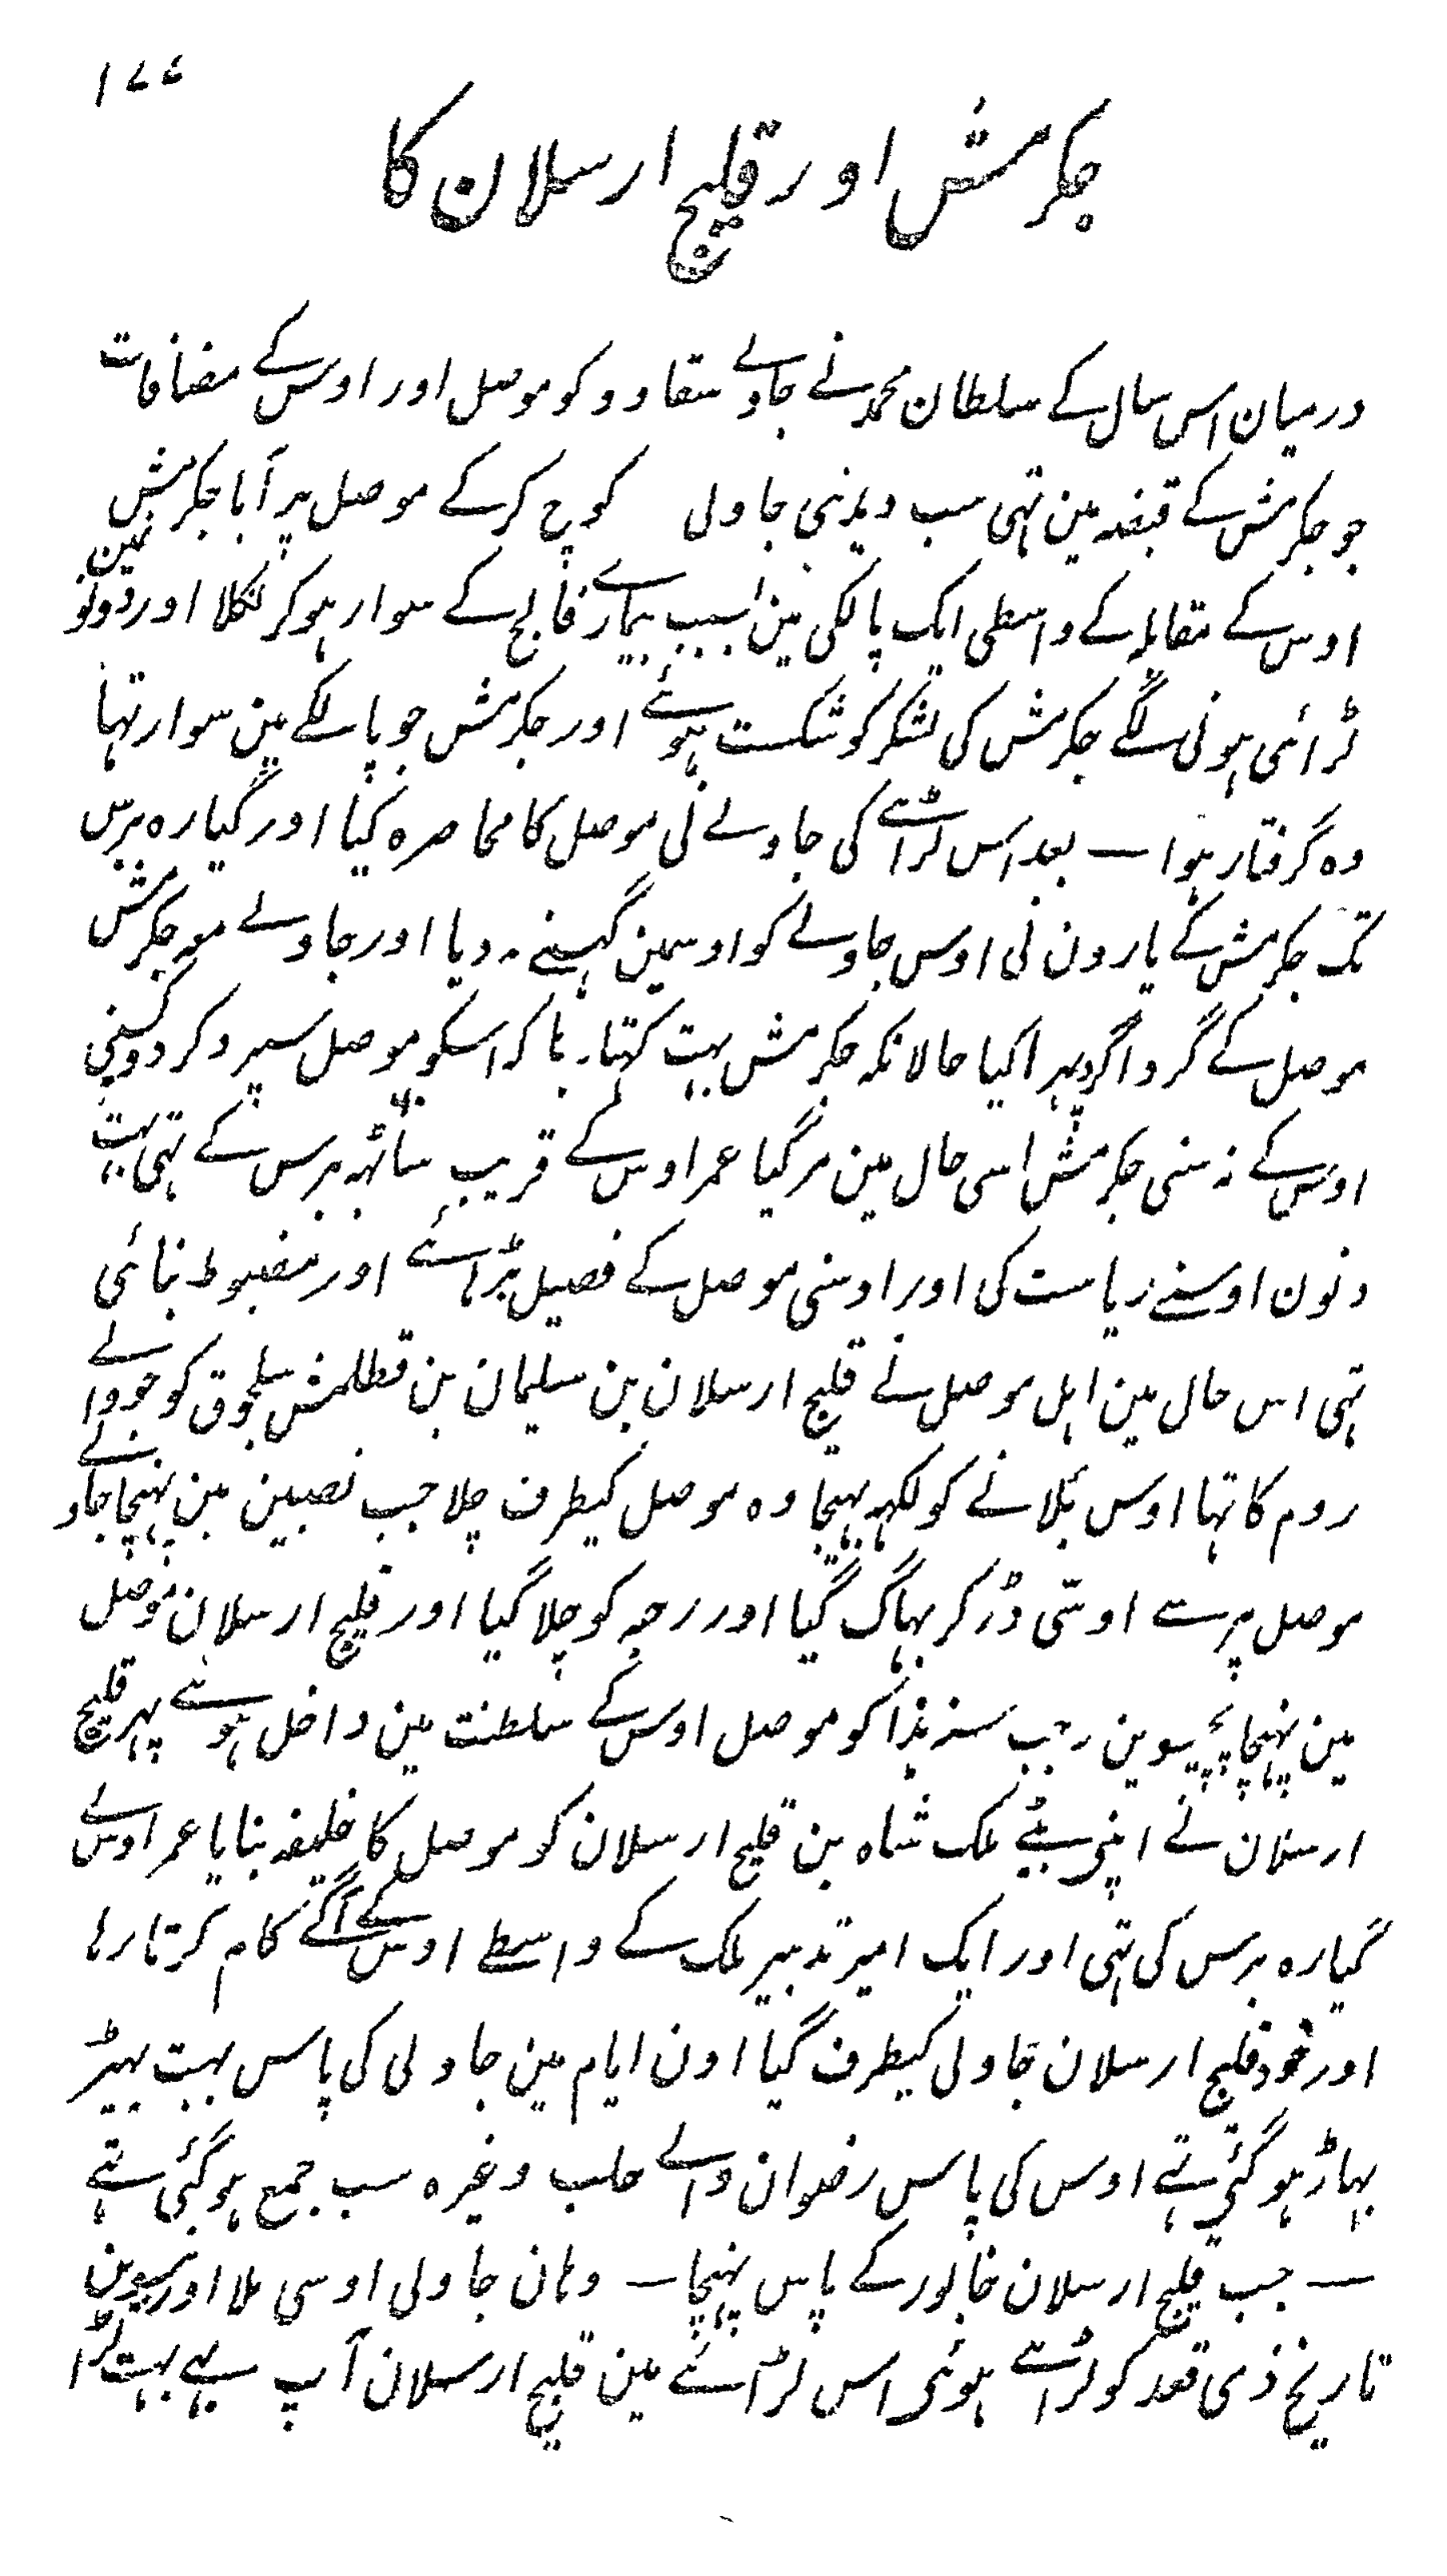 ۱۷۷
جکرمش اور قلیج ارسلان کا
درمیان اس سال کے سلطان محمد نے جاولے سقاوو کو موصل اور اوس کے مضافات
جو جکرمش کے قبضہ مین تہی سب دیدنی جاولی کوچ کرکے موصل پر آیا جکرمش
اوس کے مقابلہ کے واسطی ایک پالکی مین بسبب بیمارے فالج کے سوار ہوکر نکلا اور دونو نمین
لڑائی ہونی لگے جکرمش کی لشکر کو شکست ہوئے اور جکرمش جو پالکے مین سوار تہا
وہ گرفتار ہوا — بعد اس لڑائے کی جاولے نی موصل کا محاصرہ کیا اور گیارہ برس
تک جکرمش کے یارون نی اوس جاولے کو اوسمین گہسنے نہ دیا اور جاولے معہ جکرمش
موصل کے گرداگرد پہرا کیا حالانکہ جکرمش بہت کہتا رہا کہ اسکو موصل سپرد کردو کسینی
اوس کے نہ سنی جکرمش اسی حال مین مرگیا عمر اوس کے قریب ساٹہہ برس کے تہی بہت
دنون اوسنے ریاست کی اور اوسنی موصل کے فصیل بڑہائے اور مضبوط بنائی
تہی اس حال مین اہل موصل نے قلیج ارسلان بن سلیمان بن قطلمش سلجوق کو جو والے
روم کا تہا اوس بلانے کو لکہہ بہیجا وہ موصل کیطرف چلا جب نصبین مین پہنچا جاولے
موصل پر سے اوسی ڈر کر بہاگ گیا اور رحبہ کو چلا گیا اور قلیج ارسلان موصل
مین پہنچا پچیسوین رجب سنہ ہذا کو موصل اوس کے سلطنت مین داخل ہوئے پہر قلیج
ارسلان نے اپنی بیٹے ملک شاہ بن قلیج ارسلان کو موصل کا خلیفہ بنایا عمر اوس کے
گیارہ برس کی تہی اور ایک امیر تدبیر ملک کے واسطے اوس کے آگے کام کرتا رہا
اور خود قلیج ارسلان جاولی کیطرف گیا اون ایام مین جاولی کی پاس بہت بہیڑ
بہاڑ ہوگئی تہے اوس کی پاس رضوان والے حلب وغیرہ سب جمع ہوگئی تہے
— جب قلیج ارسلان خابور کے پاس پہنچا — وہان جاولی اوسی ملا اور بیسوین
تاریخ ذی قعد کو لڑائے ہوئی اس لڑائے مین قلیج ارسلان آپ بہے بہت لڑا